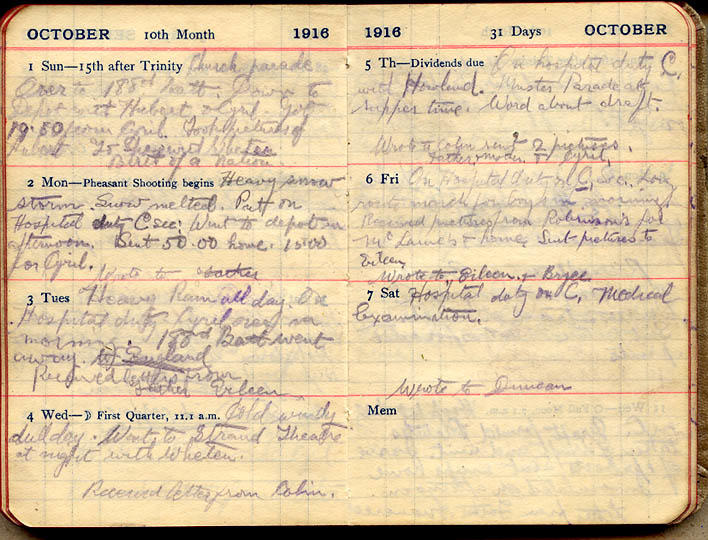 OCTOBER 10th Month 1916
1 Sun—15th after Trinity Church parade
Over to 183rd Batt. Down to
Depot met Hubert & Cyril. Got
19.50 from Cyril. Took pictures of
Hubert. To
Birth of a Nation.
2 Mon—Pheasant Shooting begins Heavy snow
storm. Snow melted. Put on
Hospital duty C sec. Went to depot in
afternoon. Sent 50.00 home. 10.00
for Cyril.
Wrote to father
3 Tues Heavy Rain all day. On
Hospital duty. Cyril over in
morning. 183rd Batt went
away to England
Received letters from
father Eileen
4 Wed—☽ First Quarter, 11.1 a.m. Cold windy
dull day. Went to Strand Theatre
at night with Whelen.
Received letter from Colin.
1916 31 Days OCTOBER
5 Th—Dividends due On hospital duty C,
with Howland. Muster Parade at
supper time. Word about draft.
Wrote Colin sent 2 pictures.
father & Cyril,
6 Fri On Hospital duty on C, sec. Long
route march for boys in morning.
Received pictures from Robinson's for
& home. Sent pictures to
Eileen
Wrote to Eileen &
7 Sat Hospital duty on C, Medical
Examination.
Wrote to Duncan
Mem